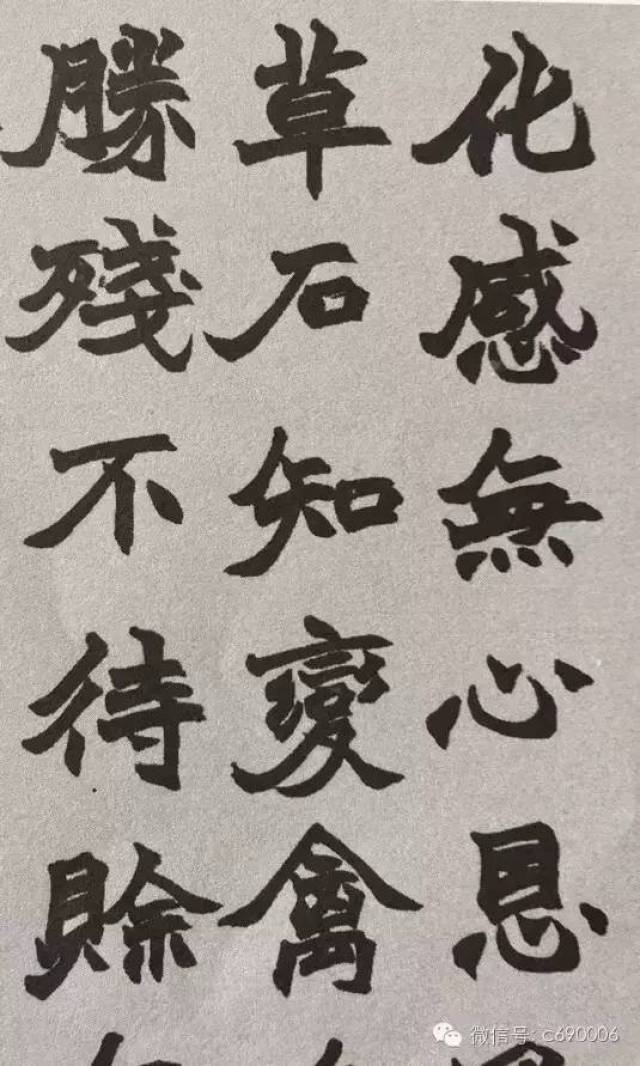 化感無心恩
草石知變禽
勝殘不待賒
微信号: c690006